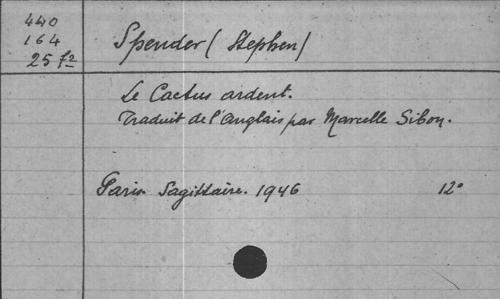 440
164
25 f²
Spender (Stephen)
Le Cactus ardent.
Traduit de l'anglais par Marcelle Sibon.
Paris. Sagittaire. 1946 12°